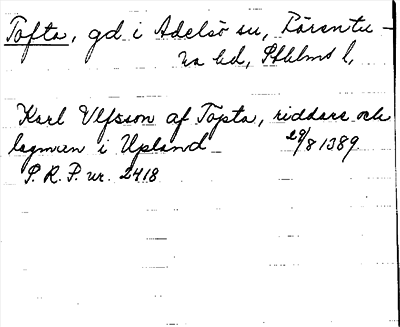 Tofta, gd i Adelsö sn, Färentu-
na hd, Sthlms l,
Karl Ulfsson af Topta, riddare och
lagman i Upland 29/8 1389
S. R. P. nr. 2418